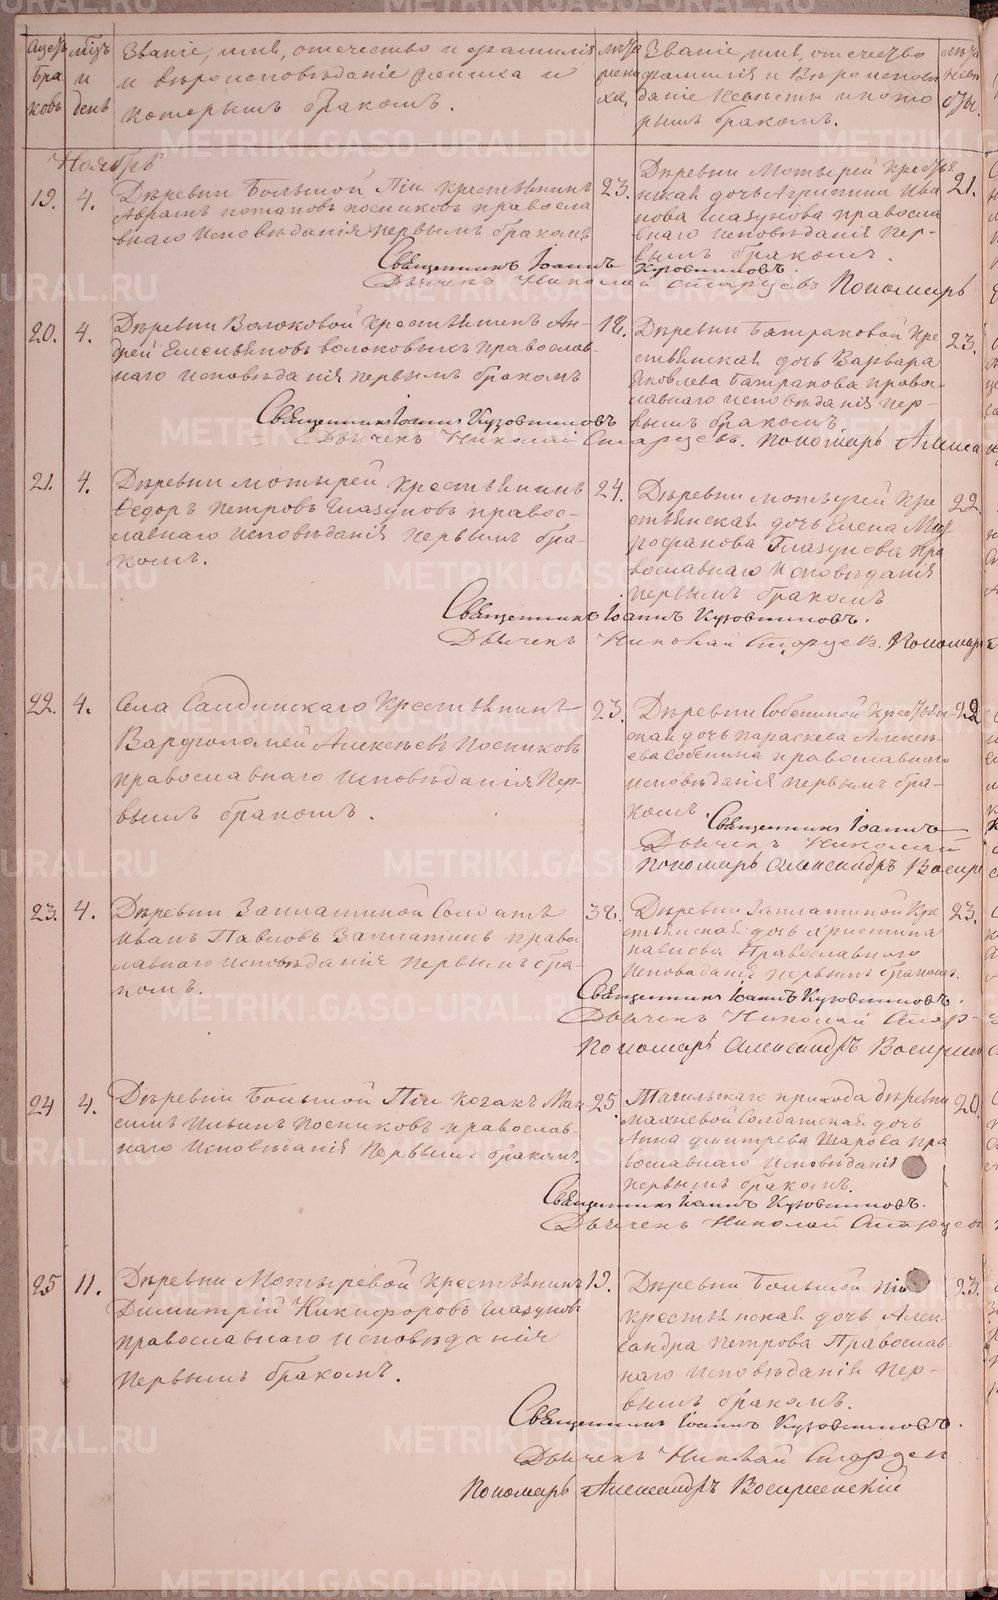 Щетъ браковъ
мѣцъ и день
Званіе, имя, отечество и фамилія
и вѣроисповѣданіе жениха и
которымъ бракомъ.
лѣта жениха,
Званіе, имя, отечество
фамилія и Вѣроисповѣ
даніе невѣсты и кото
рымъ бракомъ.
лѣта невѣсты.
Ноябрь
19. 4.
Деревни Большой Піи крестьянинъ
Аврамъ Потаповъ Посниковъ правосла
внаго исповѣданія первымъ бракомъ
23.
Деревни Мотырей Крестья
нская дочь Агрипина Ива
нова Глазунова правосла
внаго исповѣданія пер-
вымъ бракомъ.
21.
Священникъ Іоаннъ Кузовниковъ.
Дьячекъ Николай Старцевъ Пономарь
20. 4.
Деревни Волоковой Крестьянинъ Ан-
дрей Емельяновъ Волоковыхъ Православ-
наго Исповѣданія первымъ бракомъ
18.
Деревни Батраковой Кре
стьянская дочь Варвара
Яковлева Батракова право-
славнаго исповѣданія пер-
вымъ бракомъ
23.
Священникъ Іоаннъ Кузовниковъ
Дьячекъ Николай Старцевъ. Пономарь Алекса
21. 4.
Деревни Мотырей Крестьянинъ
Ѳедоръ Петровъ Глазуновъ правос-
лавнаго исповѣданія первымъ бра-
комъ.
24.
Деревни Мотырей Кре
стьянская дочь Елена Мит
рофанова Глазунова пра
вославнаго Исповѣданія
первымъ бракомъ
22.
Священникъ Іоаннъ Кузовниковъ.
Дьячекъ Николай Старцев. Пономарь
22. 4.
Села Салдинскаго Крестьянинъ
Варфоломей Алексѣевъ Посниковъ
православнаго исповѣданія Пер-
вымъ бракомъ.
23.
Деревни Собениной Крестьян-
ская дочь Параскева Алексѣ-
ева Собенина православнаго
исповѣданія первымъ бра-
комъ.
22
Священникъ Іоаннъ
Дьячекъ Николай
Пономарь Александръ Воскре
23. 4.
Деревни Заплатиной Солдатъ
Иванъ Павловъ Заплатинъ право
славнаго исповѣданія первымъ бра-
комъ.
38.
Деревни Заплатиной Кре
стьянская дочь Христина
Павлова Православнаго
исповѣданія первымъ бракомъ.
23.
Священникъ Іоаннъ Кузовниковъ.
Дьячекъ Николай Стар-
Пономарь Александръ Воскресен
24 4.
Деревни Большой Піи Козакъ Мак
симъ Ильинъ Посниковъ православ-
наго исповѣданія Первымъ бракомъ.
25.
Тагильскаго прихода деревни
Махневой Солдатская дочь
Анна Дмитрева Шарова пра
вославнаго исповѣданія
первымъ бракомъ.
20.
Священникъ Іоаннъ Кузовниковъ.
Дьячекъ Николай Старцев
25 11.
Деревни Мотыревой Крестьянинъ
Димитрій Никифоровъ Глазуновъ
православнаго исповѣданія
первымъ бракомъ.
19.
Деревни Большой Піи
крестьянская дочь Алек
сандра Петрова Православ
наго исповѣданія Пер-
вымъ бракомъ.
23.
Священникъ Іоаннъ Кузовниковъ.
Дьячекъ Николай Старцев
Пономарь Александръ Воскресенскій
METRIKI.GASO-URAL.RU